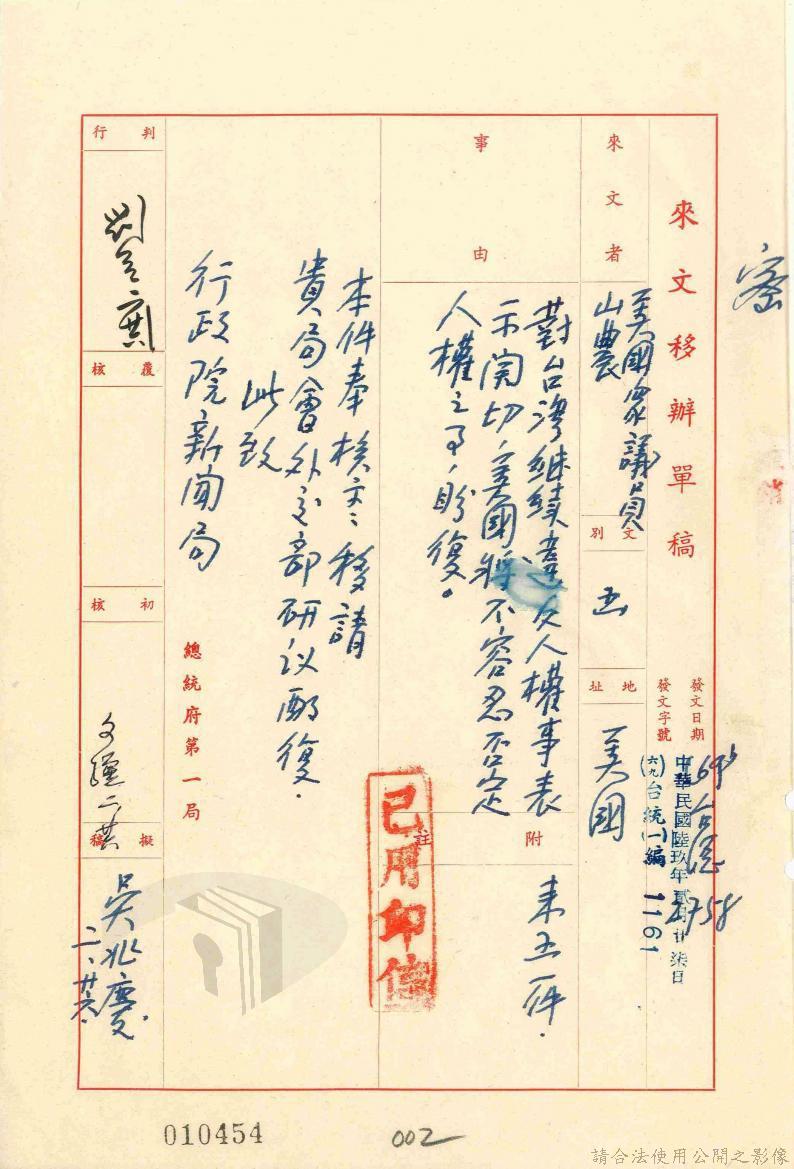 密
來文移辦單稿
發文日期
中華民國陸玖年貳月廿柒日
發文字號
(六九)台統(一)編 1161
來文者
美國眾議員
山農
文別
函
地址
美國
事由
對台灣継续違反人權事表
示関切,美國將不容忍否定
人權之事,盼復。
附註
來函一件.
已用印信
本件奉核交:移請
貴局會外交部研议酌復.
此致
行政院新聞局
總統府第一局
判行
覆核
初核
擬稿
吳兆慶
二、廿六.
010454
002
請合法使用公開之影像